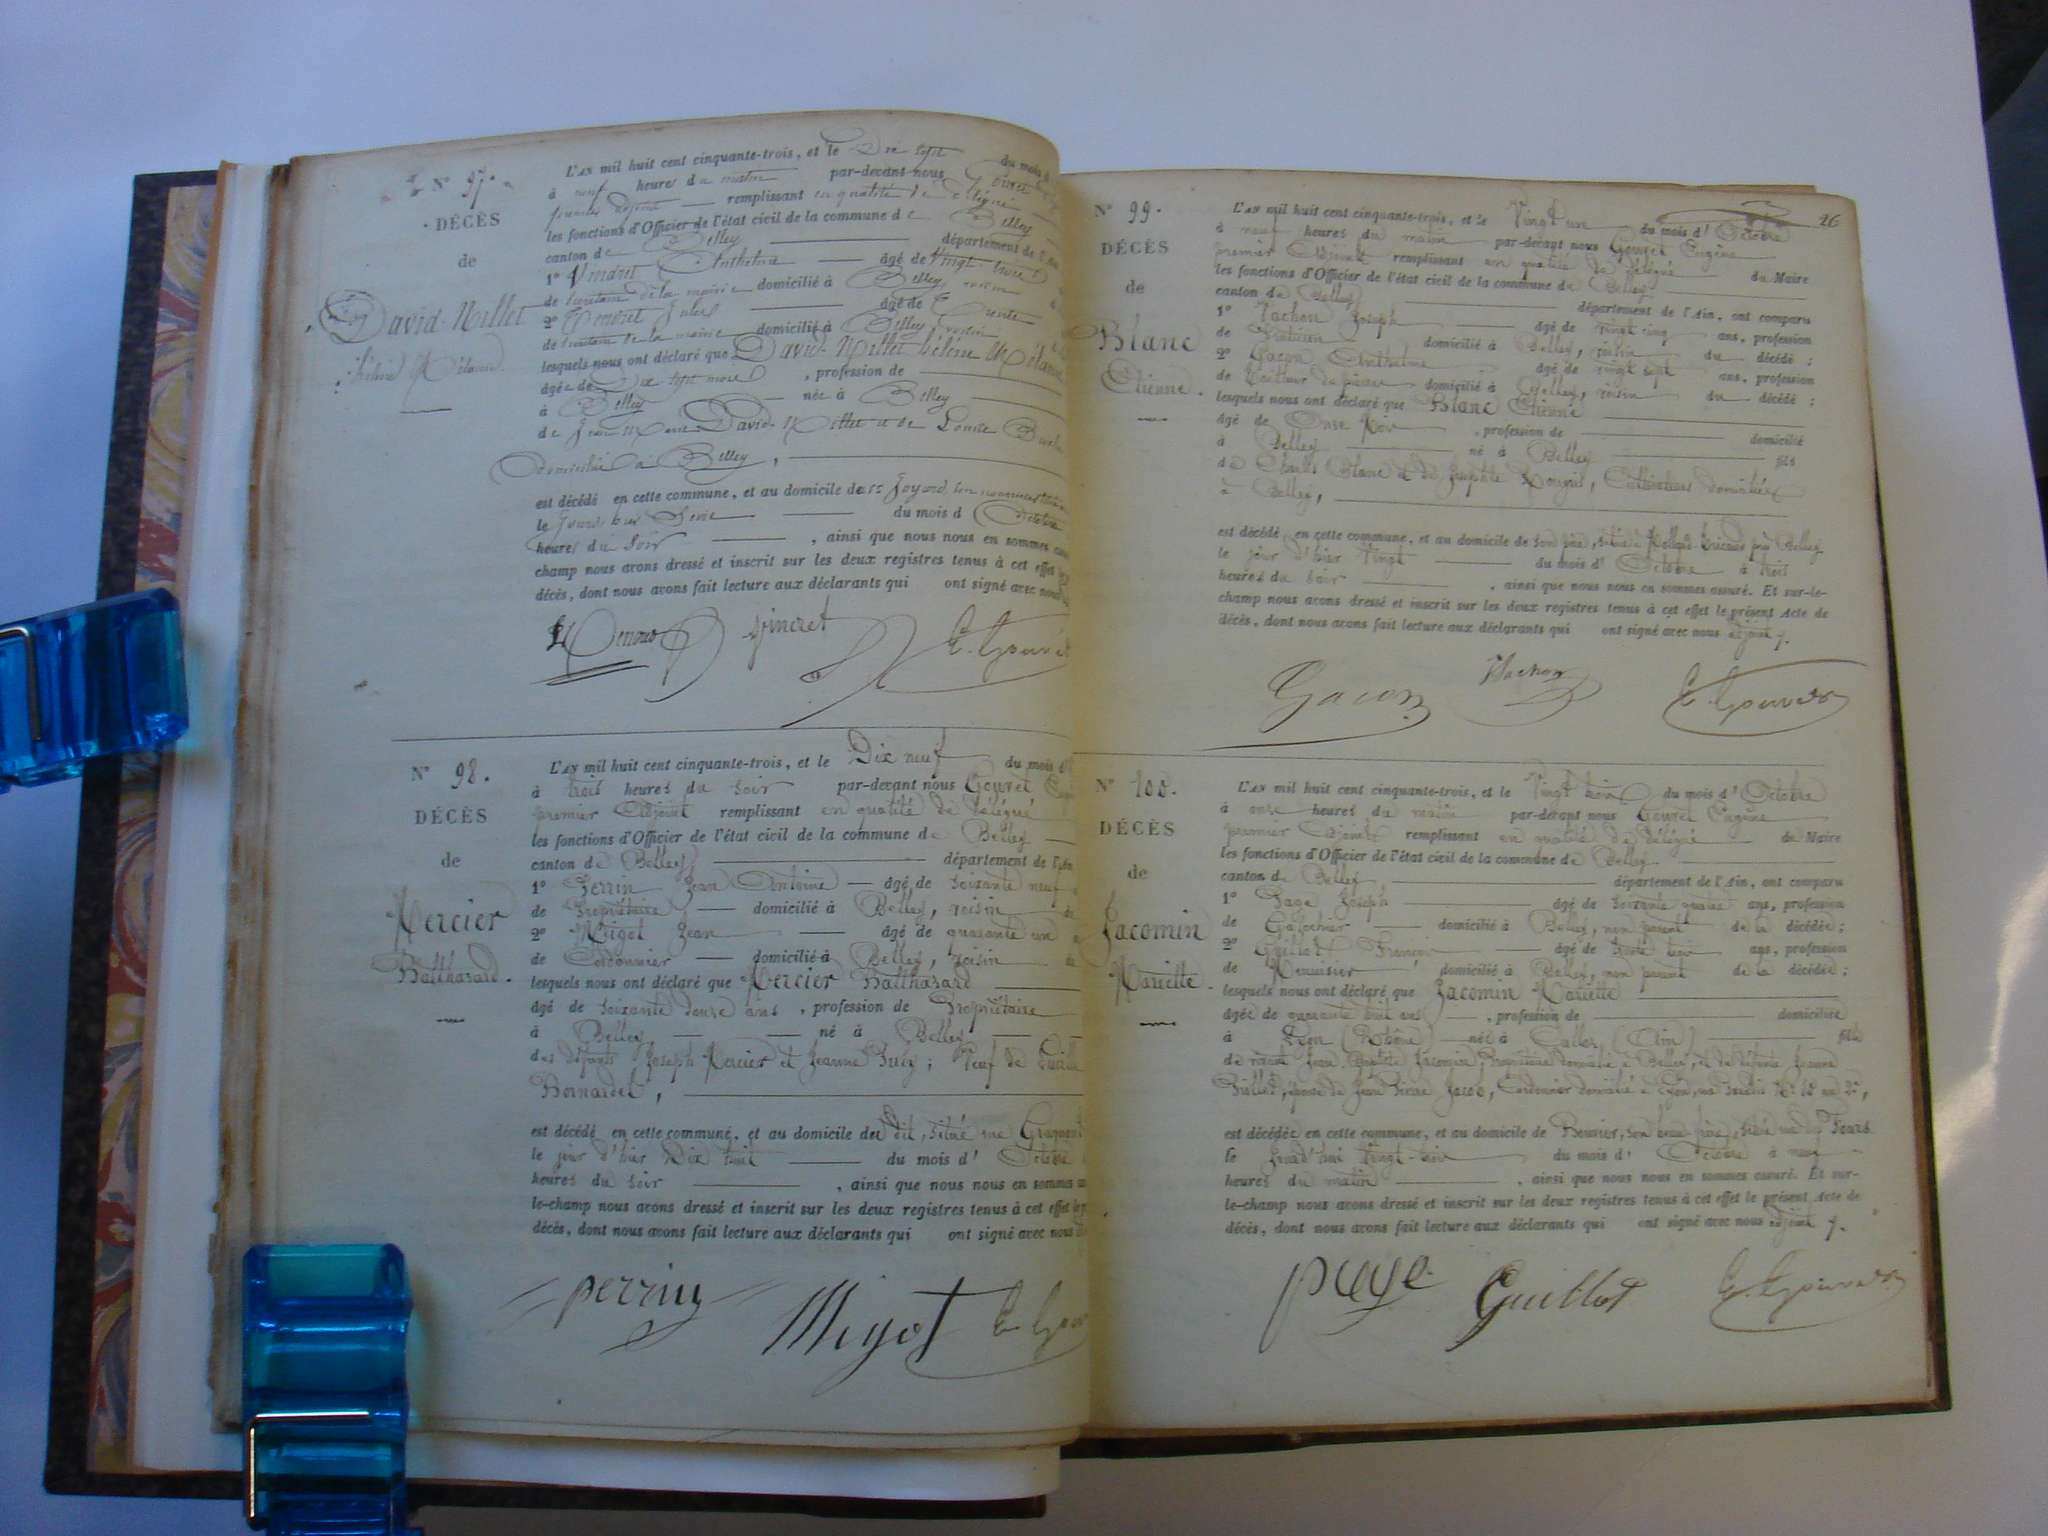 N° 97.
DÉCÈS
de
David-Millet
L'AN mil huit cent cinquante-trois, et le Dix sept du mois d'
à neuf heures du matin par-devant nous Gouvret
premier adjoint remplissant en qualité de délégué
les fonctions d'Officier de l'état civil de la commune de Belley
canton de Belley département de l'Ain
1° Vincret Anthelme âgé de Vingt-trois
de Secrétaire de la mairie domicilié à Belley, voisin
2° Jules âgé de Trente
de Secrétaire de la mairie domicilié à Belley, voisin
lesquels nous ont déclaré que David-Millet hélène Mélanie
âgée de Dix sept mois , profession de
à Belley née à Belley
de Jean Marie David-Millet et de Louise
Domiciliés à Belley,
est décédé en cette commune, et au domicile de
le jour d'hier Seize du mois d'Octobre
heures du Soir , ainsi que nous nous en sommes
champ nous avons dressé et inscrit sur les deux registres tenus à cet effet
décès, dont nous avons fait lecture aux déclarants qui ont signé avec nous
Vincret E. Gouvret
N° 98.
DÉCÈS
de
Mercier
Balthazard.
L'AN mil huit cent cinquante-trois, et le Dix neuf du mois d'
à trois heures du soir par-devant nous Gouvret
premier Adjoint remplissant en qualité de délégué
les fonctions d'Officier de l'état civil de la commune de Belley
canton de Belley département de l'Ain
1° Perrin Jean Antoine âgé de soixante neuf
de Propriétaire domicilié à Belley, voisin
2° Migot Jean âgé de quarante un
de Cordonnier domicilié à Belley, voisin
lesquels nous ont déclaré que Mercier Balthazard
âgé de soixante douze ans , profession de Propriétaire
à Belley né à Belley
des défunts Joseph Mercier et Jeanne ; Veuf de
est décédé en cette commune, et au domicile du dit, situé rue
le jour d'hier Dix huit du mois d'Octobre
heures du soir , ainsi que nous nous en sommes
le-champ nous avons dressé et inscrit sur les deux registres tenus à cet effet le
décès, dont nous avons fait lecture aux déclarants qui ont signé avec nous
perrin Migot E. Gouv
26
N° 99.
DÉCÈS
de
Blanc
Etienne.
L'AN mil huit cent cinquante-trois, et le Vingt un du mois d'Octobre
à neuf heures du matin par-devant nous Gouvret Eugène
premier Adjoint remplissant en qualité de délégué du Maire
les fonctions d'Officier de l'état civil de la commune de Belley
canton de Belley département de l'Ain, ont comparu
1° Vachon Joseph âgé de vingt cinq ans, profession
de Praticien domicilié à Belley, voisin du décédé ;
2° Gacon Anthelme âgé de vingt sept ans, profession
de Tailleur de pierre domicilié à Belley, voisin du décédé ;
lesquels nous ont déclaré que Blanc Etienne
âgé de Onze Mois , profession de domicilié
à Belley né à Belley fils
de Charles Blanc et de Josephte , Cultivateurs domiciliés
à Belley,
est décédé en cette commune, et au domicile de son père, situé à près Belley
le jour d'hier vingt du mois d'Octobre à trois
heures du soir , ainsi que nous nous en sommes assuré. Et sur-le-
champ nous avons dressé et inscrit sur les deux registres tenus à cet effet le présent Acte de
décès, dont nous avons fait lecture aux déclarants qui ont signé avec nous adjoint
Gacon Vachon E. Gouvret
N° 100.
DÉCÈS
de
Jacomin
Mariette.
L'AN mil huit cent cinquante-trois, et le Vingt trois du mois d'Octobre
à onze heures du matin par-devant nous Gouvret Eugène
premier Adjoint remplissant en qualité de délégué de Maire
les fonctions d'Officier de l'état civil de la commune de Belley
canton de Belley département de l'Ain, ont comparu
1° Page Joseph âgé de soixante quinze ans, profession
de Galochier domicilié à Belley, non parent de la décédée ;
2° Guillot François âgé de trente trois ans, profession
de Menuisier domicilié à Belley, non parent de la décédée ;
lesquels nous ont déclaré que Jacomin Mariette
âgée de quarante huit ans , profession de domiciliée
à Lyon (Rhône) née à (Ain) fille
de vivant Jean Baptiste Jacomin, Propriétaire domicilié à Belley, et de défunte Jeanne
épouse de Jean Pierre , Cordonnier domicilié à Lyon,
est décédée en cette commune, et au domicile de son beau frère, situé
le jourd'hui vingt-trois du mois d'Octobre à neuf
heures du matin , ainsi que nous nous en sommes assuré. Et sur-
le-champ nous avons dressé et inscrit sur les deux registres tenus à cet effet le présent Acte de
décès, dont nous avons fait lecture aux déclarants qui ont signé avec nous adjoint
page Guillot E. Gouvret